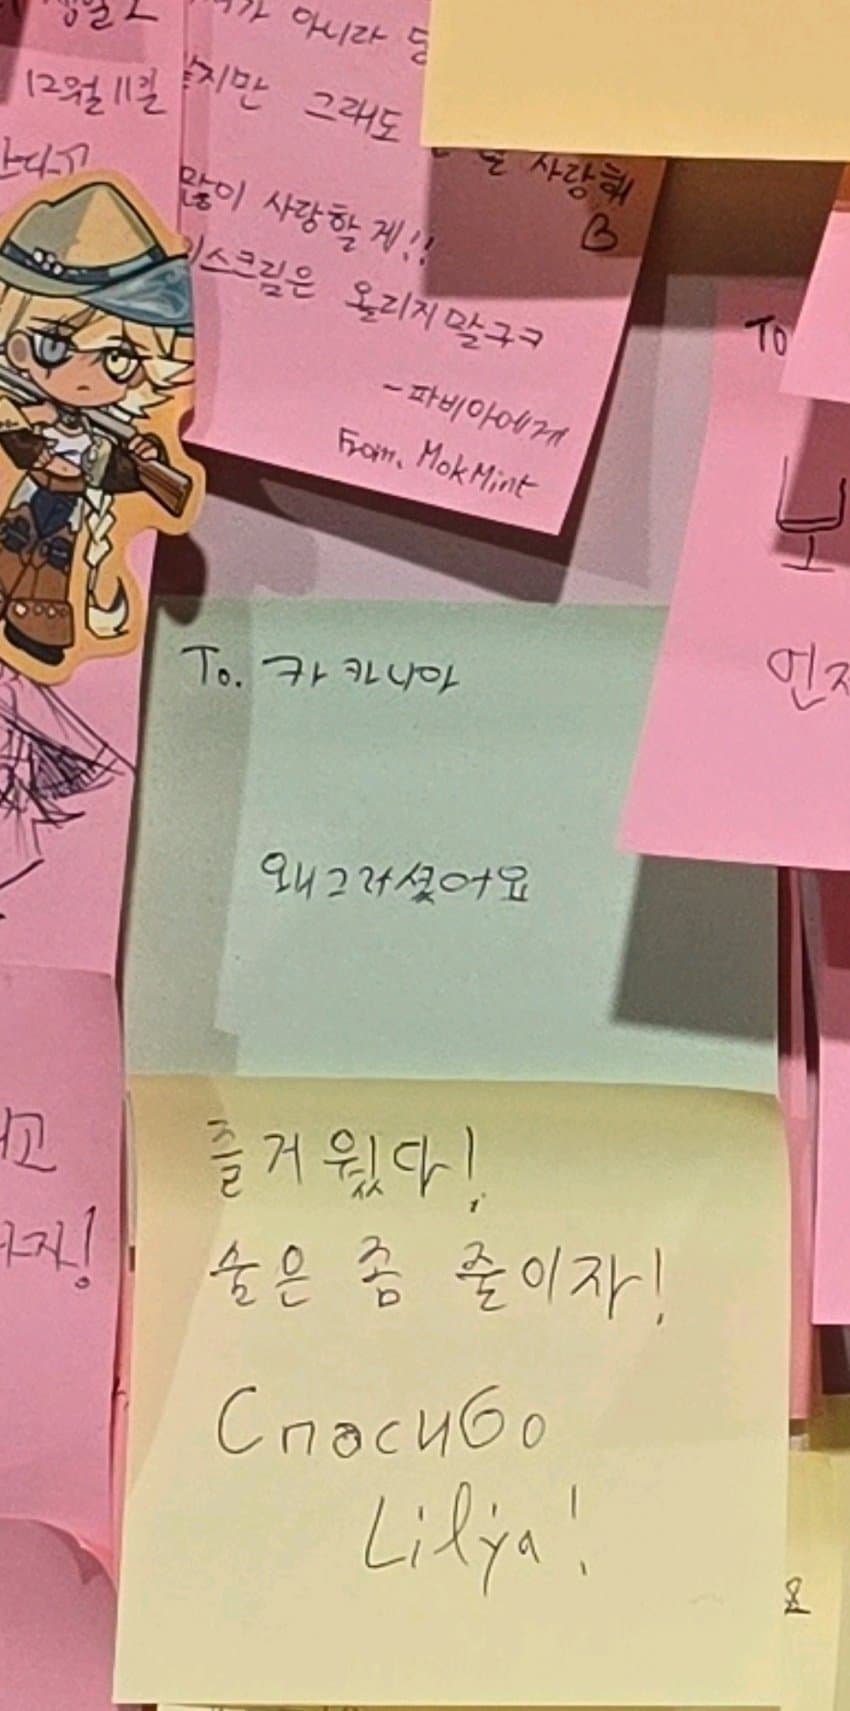 12월 11일
가 아니라
지만 그래도
사랑해
많이 사랑할게!!
스크림은 올리지말구ㅋ
-파비아에게
From. MokMint
TO
To. 카카니아
왜그러셨어요
즐거웠다!
술은 좀 줄이자!
Спасибо
Lilya!